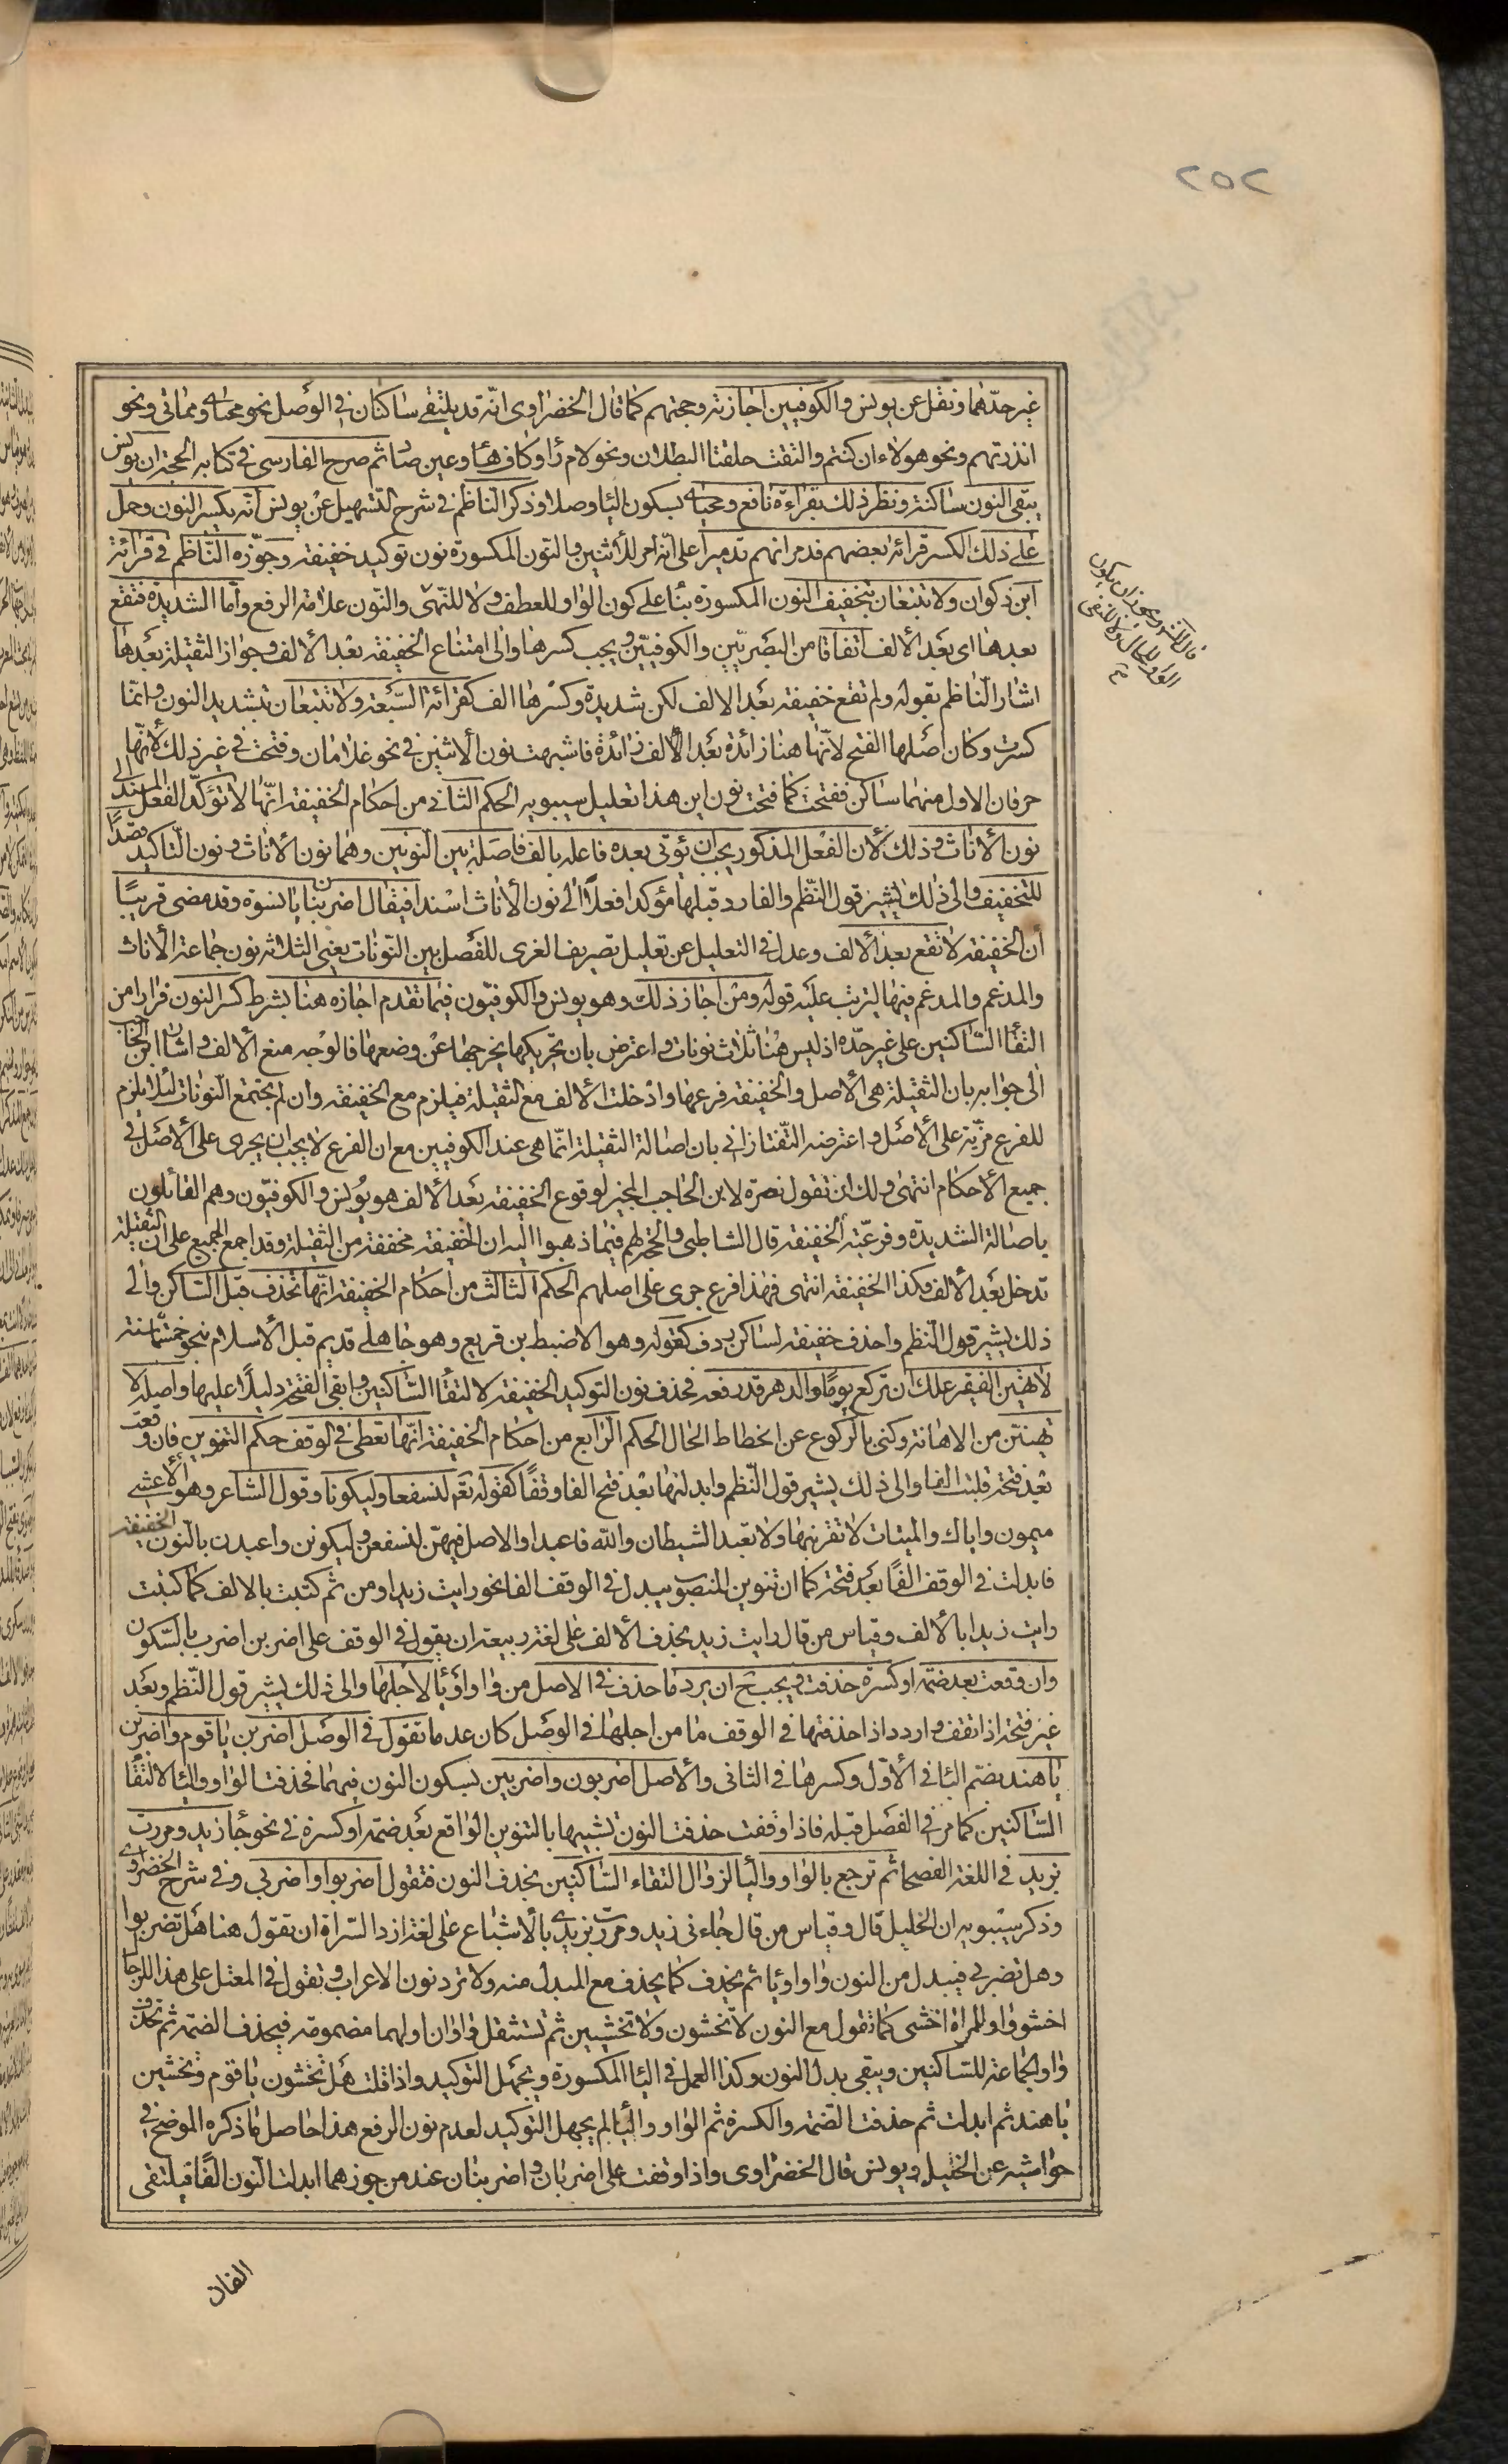 ٢٥٢
غير حدّهما ونقل عن يونس والكوفيين اجازته وحجتهم كما قال الخضراوى انه قد يلتقى ساكنان فى الوصل نحو محياى ومماتى ونحو
انذرتهم ونحو هولاء ان كنتم والتقت حلقتا البطان ونحو لام را وكاف ها وعين صاد ثم صرح الفارسى فى كتابه الحجة ان يونس
يبقى النون ساكنة ونظر ذلك بقراءة نافع ومحياى بسكون اليا وصلا وذكر الناظم فى شرح التسهيل عن يونس انه يكسر النون وحمل
على ذلك الكسر قرائة بعضهم فدمرانهم تدميرا على انه امر للاثنين والنون المكسورة نون توكيد خفيفة وجوّزه الناظم فى قرائة
ابن ذكوان ولا تتبعان بتخفيف النون المكسورة بنا على كون الواو للعطف ولا للنهى والنون علامة الرفع وأما الشديدة فتقع
بعدها اى بعد الألف اتفاقا من البصريين والكوفيين ويجب كسرها والى امتناع الخفيفة بعد الألف وجواز الثقيلة بعدها
اشار الناظم بقوله ولم تقع خفيفة بعد الالف لكن شديدة وكسرها الف كقرائة السبعة ولا تتبعان بتشديد النون وانما
كسرت وكان أصلها الفتح لانها هنا زائدة بعد الألف زائدة فاشبهت نون الاثنين فى نحو غلامان وفتحت فى غير ذلك لأنها
حرفان الاول منهما ساكن ففتحت كما فتحت نون اين هذا تعليل سيبويه الحكم الثانى من احكام الخفيفة انها لا توكد الفعل المسند الى
نون الأناث وذلك لأن الفعل المذكور يجب ان يؤتى بعده فاعله بالف فاصلة بين النونين وهما نون الأناث ونون التاكيد قصدًا
للتخفيف والى ذلك يشير قول النظم والفا زد قبلها مؤكدا فعلا الى نون الأناث اسندا فيقال اضربنان يا نسوة وقد مضى قريبًا
أن الخفيفة لا تقع بعد الألف وعدل فى التعليل عن تعليل تصريف الغرى للفصل بين النونات يعنى الثلاثه نون جماعة الأناث
والمدغم والمدغم فيها ليترتب عليه قوله ومن اجاز ذلك وهو يونس والكوفيون فيما تقدم اجازه هنا بشرط كسر النون فرارا من
التقا الساكنين على غير حدّه اذ ليس هنا ثلاث نونات واعترض بان تحريكها يخرجها عن وضعها فالوجه منع الألف واشار ابن الحاجب
الى جوابه بان الثقيلة هى الأصل والخفيفة فرعها وادخلت الألف مع الثقيلة فيلزم مع الخفيفة وان لم يجتمع النونات لئلا يلزم
للفرع مزية على الأصل واعترضه التفتازانى بان اصالة الثقيلة انما هى عند الكوفيين مع ان الفرع لا يجب ان يجرى على الأصل فى
جميع الأحكام انتهى ولك ان تقول نصرة لابن الحاجب المجيز لوقوع الخفيفة بعد الألف هو يونس والكوفيون وهم القائلون
باصالة الشديدة وفرعية الخفيفة قال الشاطبى والحجة لهم فيما ذهبوا اليه ان الخفيفة مخففة من الثقيلة وقد اجمع الجميع على ان الثقيلة
تدخل بعد الألف فكذا الخفيفة انتهى فهذا فرع جرى على اصلهم الحكم الثالث من أحكام الخفيفة انها تحذف قبل الساكن والى
ذلك يشير قول النظم واحذف خفيفة لساكن ردف كقوله وهو الاضبط بن قريع وهو جاهلى قديم قبل الأسلام بنحو خمسمائة سنة
لا تهين الفقير علك ان تركع يوما والدهر قد رفعه فحذف نون التوكيد الخفيفة لالتقا الساكنين وابقى الفتحة دليلا عليها واصله لا
تهينن من الاهانة وكنى بالركوع عن انحطاط الحال الحكم الرابع من احكام الخفيفة انها تعطى فى الوقف حكم التنوين فان وقعت
بعد فتحة قلبت الفا والى ذلك يشير قول النظم وابدلنها بعد فتح الفا وقفًا كقوله تع لنسفعا وليكونا وقول الشاعر وهو الأعشى
ميمون واياك والميتات لا تقربنها ولا تعبد الشيطان والله فاعبدا والاصل فيهن لنسفعن وليكونن واعبدن بالنون الخفيفة
فابدلت فى الوقف الفًا بعد فتحة كما ان تنوين المنصوب يبدل فى الوقف الفا نحو رايت زيدا ومن ثم كتبت بالالف كما كتبت
رايت زيدا بالألف وقياس من قال رايت زيد بحذف الألف على لغة ربيعة ان يقول فى الوقف على اضربن اضرب بالسكون
وان وقعت بعد ضمة او كسرة حذفت ويجب ح ان يرد ما حذف فى الاصل من واو او يا لاجلها والى ذلك يشير قول النظم وبعد
غير فتحة اذا تقف واردد اذا حذفتها فى الوقف ما من اجلها فى الوصل كان عدما تقول فى الوصل اضربن يا قوم واضربن
يا هند بضم البا فى الأول وكسرها فى الثانى والأصل اضربون واضربين بسكون النون فيهما فحذفت الواو واليا لالتقا
الساكنين كما مر فى الفصل قبله فاذا وقفت حذفت النون تشبيها بالتنوين الواقع بعد ضمة او كسرة فى نحو جا زيد ومررت
بزيد فى اللغة الفصحى ثم ترجع بالواو واليا لزوال التقاء الساكنين بحذف النون فتقول اضربوا واضربى وفى شرح الخضراوى
وذكر سيبويه ان الخليل قال وقياس من قال جاءنى زيد ومررت بزيدى بالأشباع على لغة ازد السراة ان تقول هنا هل تضربوا
وهل تضربى فيبدل من النون واوا ويا ثم يحذف كما يحذف مع المبدل منه ولا ترد نون الاعراب وتقول فى المعتل على هذا للرجال
اخشووا وللمراة اخشيى كما تقول مع النون لا تخشون ولا تخشين ثم تستثقل واوان اولهما مضمومة فيحذف الضمة ثم تحذف
واو الجماعة للساكنين ويبقى بدل النون وكذا العمل فى اليا المكسورة ويجهل التوكيد واذا قلت هل تخشون يا قوم وتخشين
يا هند ثم ابدلت ثم حذفت الضمة والكسرة ثم الواو واليا لم يجهل التوكيد لعدم نون الرفع هذا حاصل ما ذكره الموضح فى
حواشيه عن الخليل ويونس قال الخضراوى واذا وقفت على اضربان واضربنان عند من جوزهما ابدلت النون الفًا فيلتقى
الفان